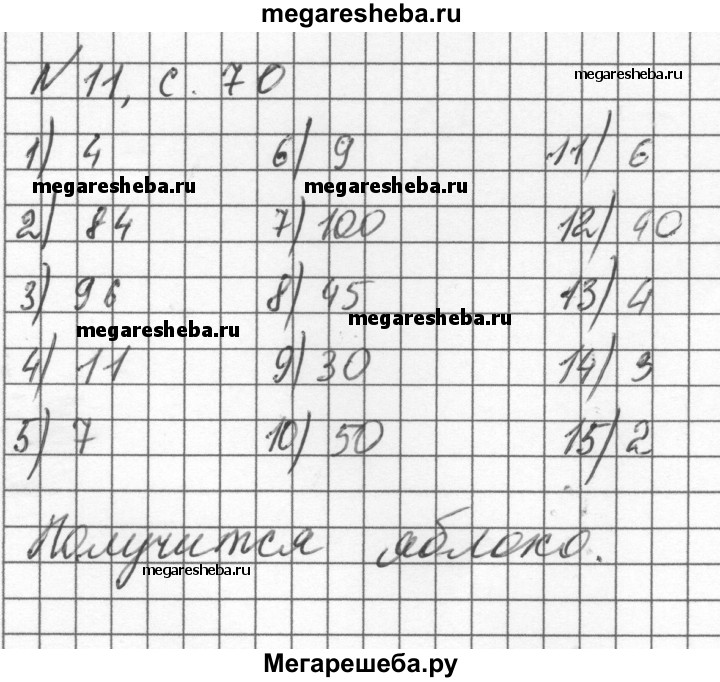 megaresheba.ru
№ 11, с. 70
megaresheba.ru
1) 4 6) 9 11) 6
megaresheba.ru megaresheba.ru
2) 84 7) 100 12) 90
3) 96 8) 45 13) 4
megaresheba.ru megaresheba.ru
4) 11 9) 30 14) 3
5) 7 10) 50 15) 2
Получится яблоко.
megaresheba.ru
Мегарешеба.ру